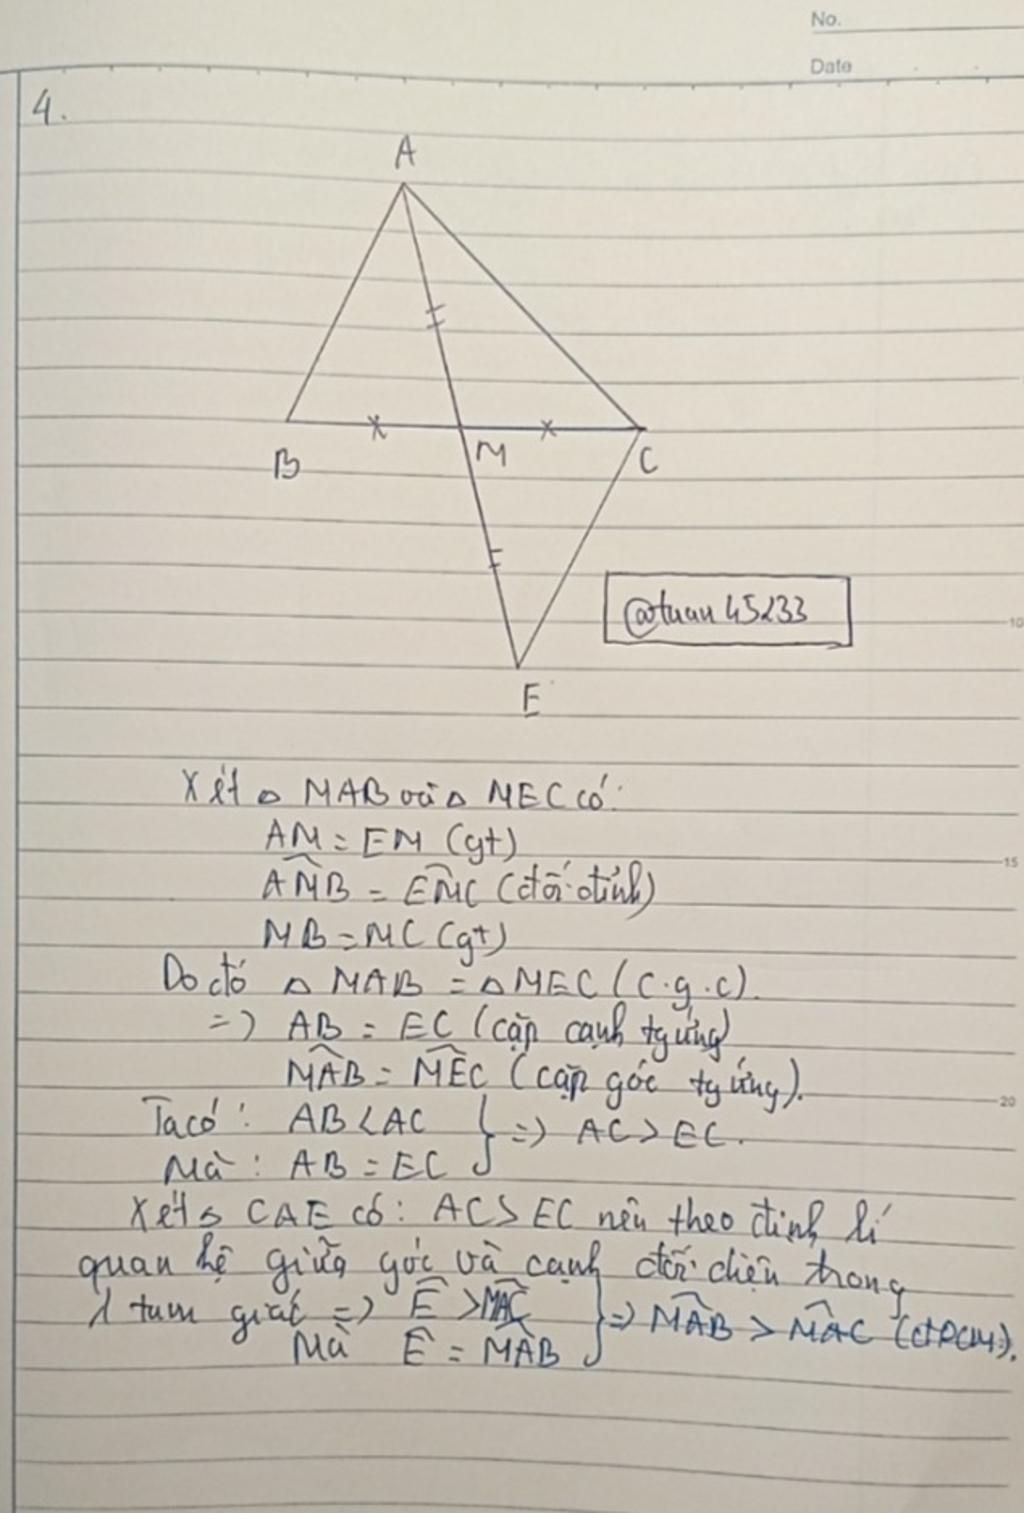 No.
Date
4.
A
B
M
C
@tuan45233
10
E
Xét △ MAB và △ MEC có:
AM = EM (gt)
15
AMB = EMC (đối đỉnh)
MB = MC (gt)
Do đó △ MAB = △ MEC (c.g.c).
=> AB = EC (cặp cạnh tg ứng)
MAB = MEC (cặp góc tg ứng).
20
Ta có: AB < AC } => AC > EC.
Mà: AB = EC
Xét △ CAE có: AC > EC nên theo định lí
quan hệ giữa góc và cạnh đối diện trong
1 tam giác => E > MAC } => MAB > MAC (đpcm).
Mà E = MAB